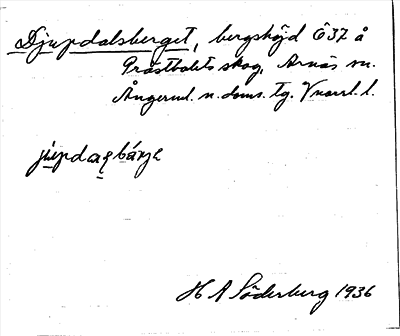 Djupdalsberget, bergshöjd Ö37 å
Prästbolets skog, Arnäs sn.
Ångerml. n. doms. tg. Vnorrl. l.
H A Söderberg 1936